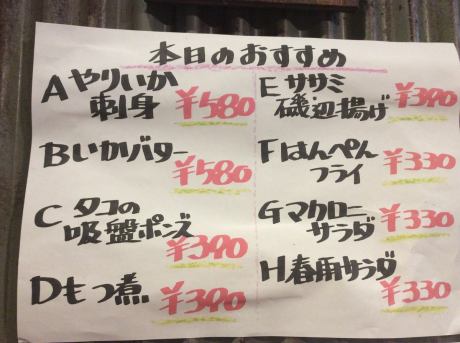 本日のおすすめ
A やりいか
刺身 ¥580
B いかバター
¥580
C タコの
吸盤ポンズ
¥390
D もつ煮
¥390
E ササミ
磯辺揚げ ¥390
F はんぺん
フライ ¥330
G マカロニ
サラダ ¥330
H 春雨サラダ
¥330